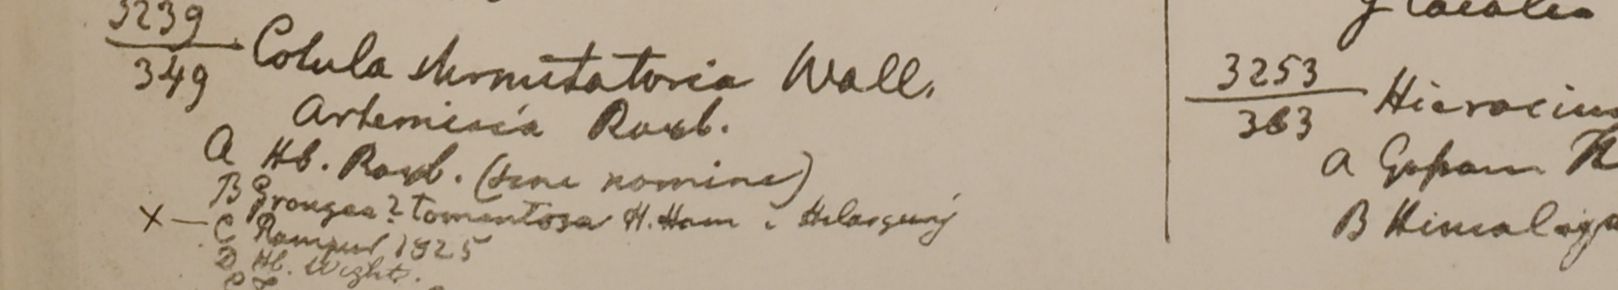 3239
349 Cotula sternutatoria Wall.
Artemisia Roxb.
A Hb. Roxb. (sine nomine)
B Grangea? tomentosa H. Ham
X — C Rampur 1825
D Hb. Wight.
3253
363 Hieraciu
A Gossam
B Himalaya